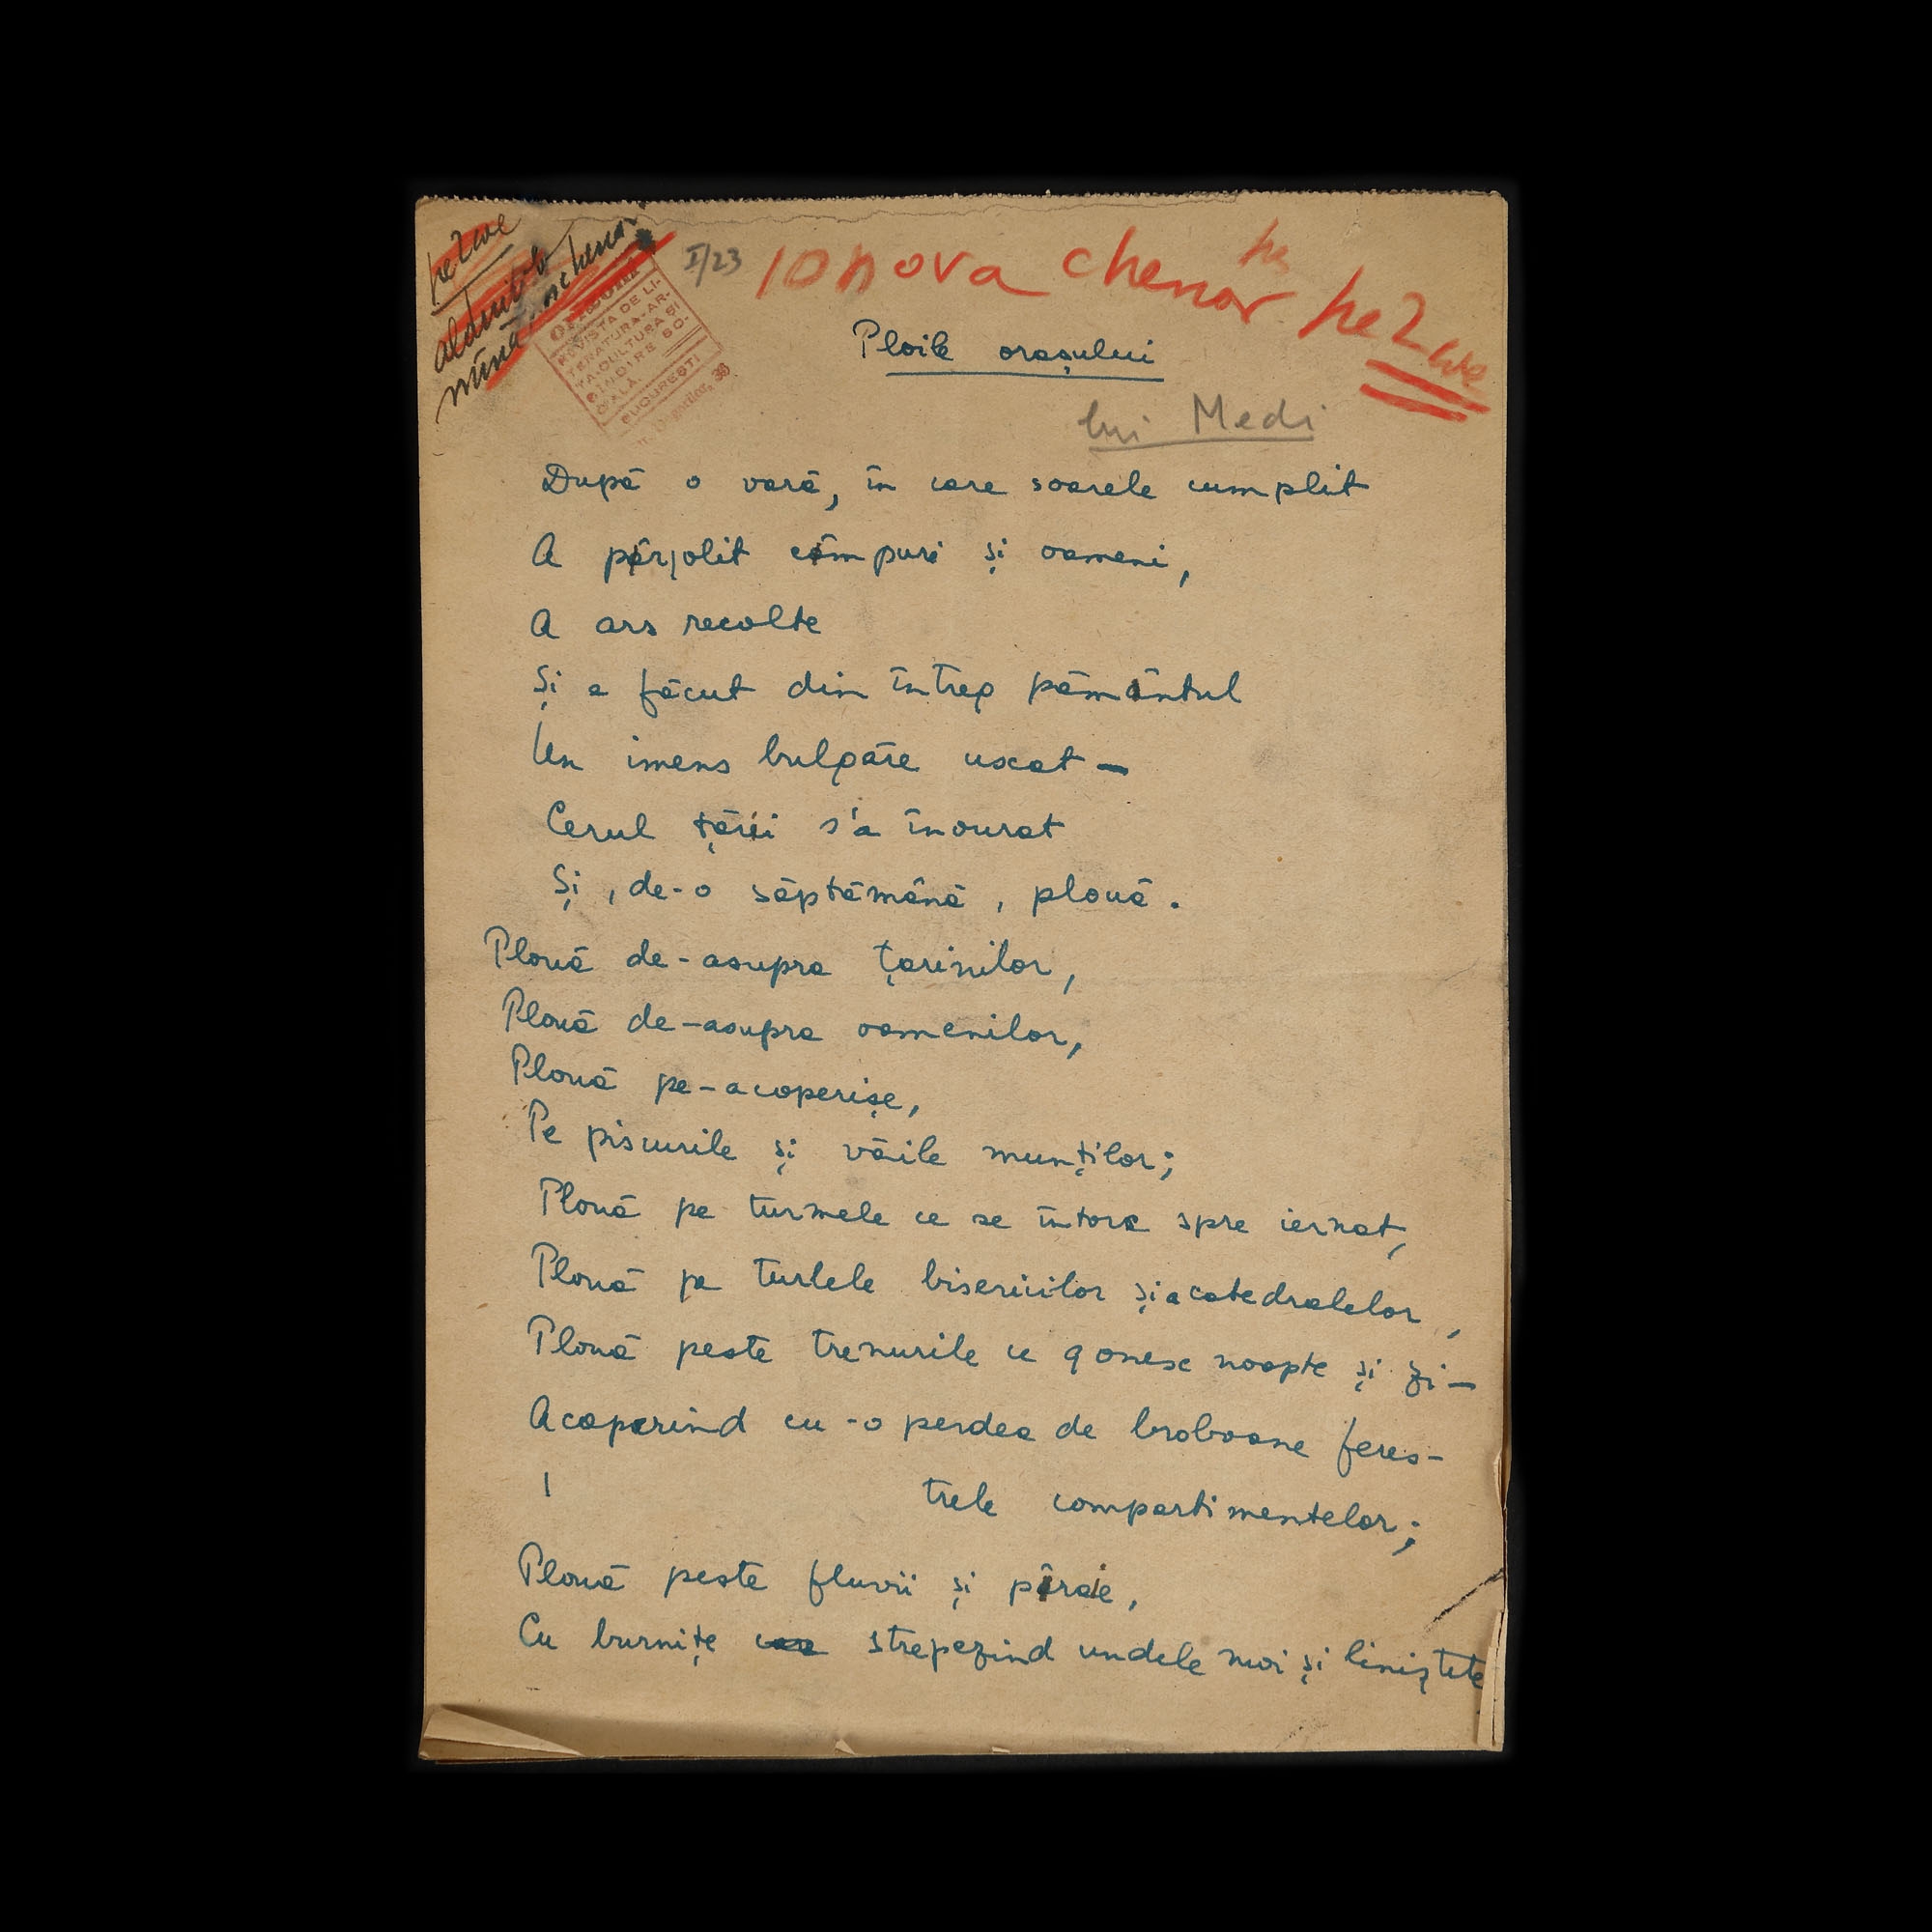 pe 2 col
aldine alb
mînă, schenar
I/23 10 nova chenar pe 2 col
REVISTA DE LI-
TERATURA-AR-
TA-CULTURA ȘI
GÎNDIRE SO-
CIALĂ.
BUCUREȘTI
Ploile orașului
lui Medi
După o vară, în care soarele cumplit
A pârjolit câmpuri și oameni,
A ars recolte
Și a făcut din întreg pământul
Un imens bulgăre uscat –
Cerul țării s'a înourat
Și, de-o săptămână, plouă.
Plouă de-asupra țarinilor,
Plouă de-asupra oamenilor,
Plouă pe-acoperișe,
Pe piscurile și văile munților;
Plouă pe turmele ce se întorc spre iernat,
Plouă pe turlele bisericilor și a catedralelor,
Plouă peste trenurile ce gonesc noapte și zi –
Acoperind cu-o perdea de broboane feres-
trele compartimentelor;
Plouă peste fluvii și pâraie,
Cu burnițe strepezind undele moi și liniștete